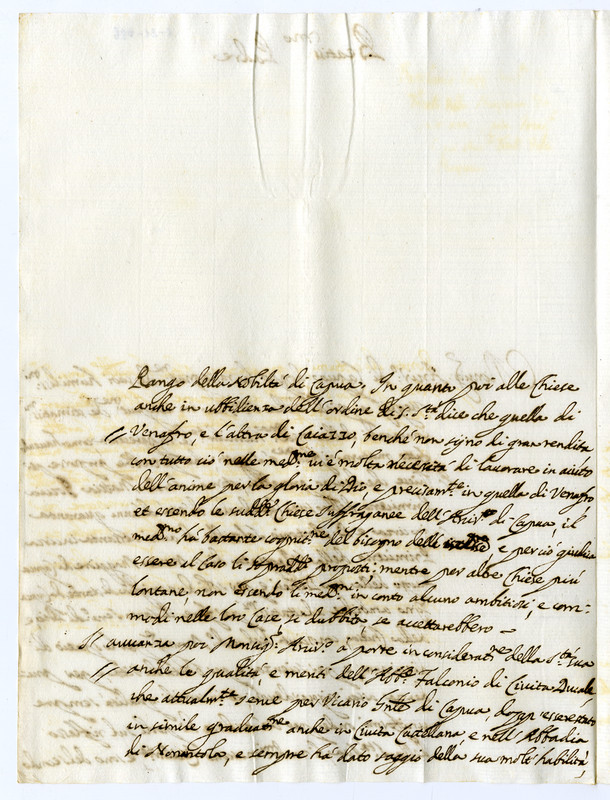 Rango della Nobiltà di Capua. In quanto poi alle Chiese
anche in ubbidienza dell'ordine di S. Stà dice che quella di
// Venafro, e l'altra di Caiazzo, benche non sijno di gran rendita,
con tutto ciò nelle med:me vi è molta necessità di lavorare in aiuto
dell'anime per la gloria di Dio, e precisam:te in quella di Venafro
et essendo le sud:e Chiese suffraganee dell'Arciv:o di Capua, il
med:mo hà bastante cognit:ne del bisogno dell' e perciò giudica
essere il caso li soprad:ti proposti: mentre per altre Chiese più
lontane, non essendo li med:mi in conto alcuno ambitiosi, e com-
modi nelle loro Case, si dubbita, se accettarebbero -
// avvanza poi Monsig:r Arciv:o à porre in considerat:ne della S:tà sua
// anche le qualità, e meriti dell'Abb:e Falconio di Civita Ducale
che attualm:te serve per Vicario Gn̄le di Capua, doppo essere stato
in simile graduat:ne anche in Civita Castellana e nell'Abbadia
di Nonantola, e sempre hà dato saggio della sua molt'habilità,